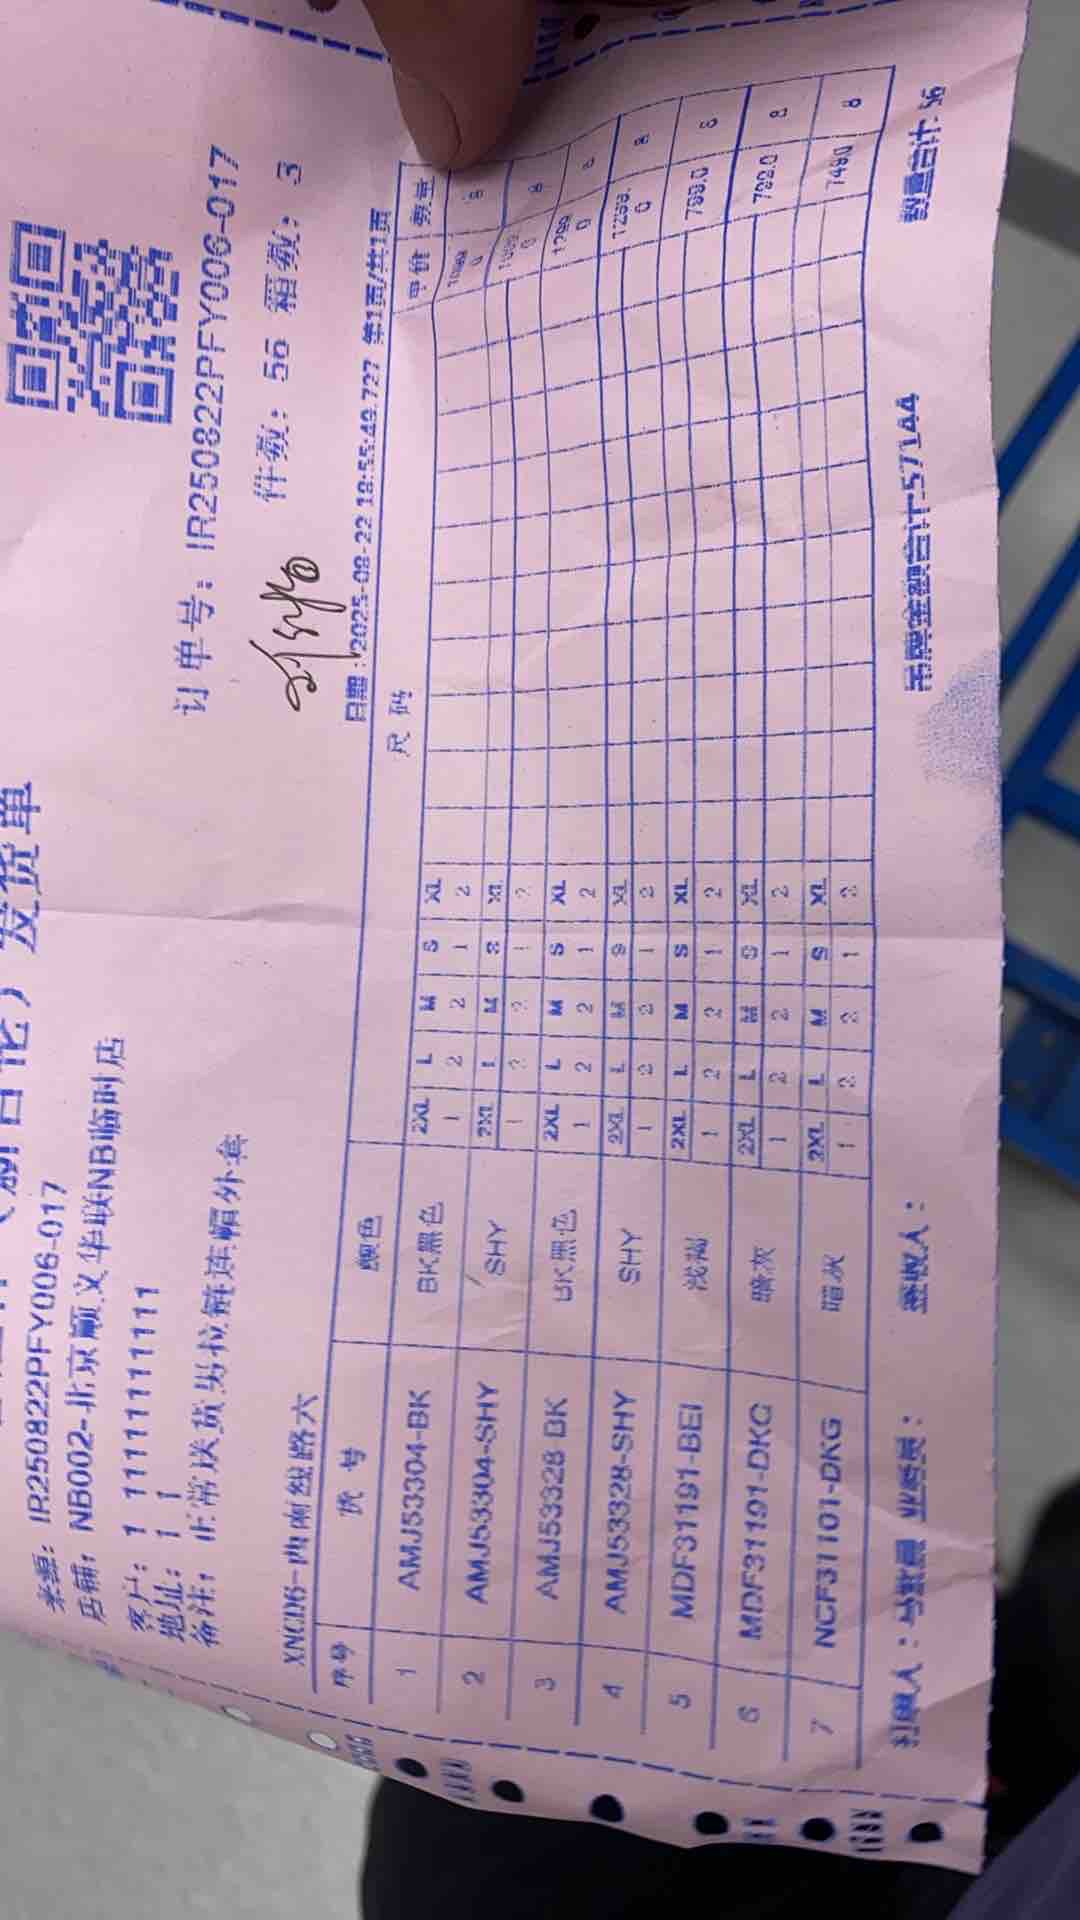 发货单
来源：IR250822PFY006-017
订单号：IR250822PFY006-017
店铺：NB002-北京顺义华联NB临时店
客户：1 11111111111
件数：56 箱数：3
地址：1 1
备注：正常送货男拉链连帽外套
XNCD6-西南线路六
日期：2025-08-22 18:55:49.727 第1页/共1页
序号 货号 颜色 尺码 单价 数量
1 AMJ53304-BK BK黑色 2XL L M S XL 8
1 2 2 1 2
2 AMJ53304-SHY SHY 2XL L M S XL 8
1 2 2 1 2
3 AMJ53328-BK BK黑色 2XL L M S XL 1299.0 8
1 2 2 1 2
4 AMJ53328-SHY SHY 2XL L M S XL 1299.0 8
1 2 2 1 2
5 MDF31191-BEI 浅褐 2XL L M S XL 799.0 8
1 2 2 1 2
6 MDF31191-DKG 暗灰 2XL L M S XL 799.0 8
1 2 2 1 2
7 NCF31101-DKG 暗灰 2XL L M S XL 749.0 8
1 2 2 1 2
吊牌金额合计:57144 数量合计:56
打单人： 业务员： 签收人：